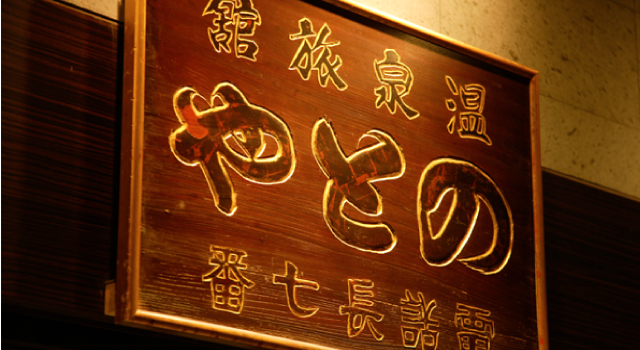 温泉旅館
のとや
電話長七番